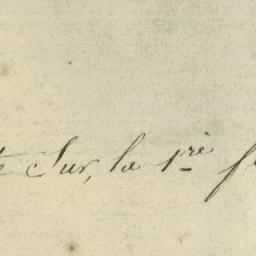 Sur, la 1.re